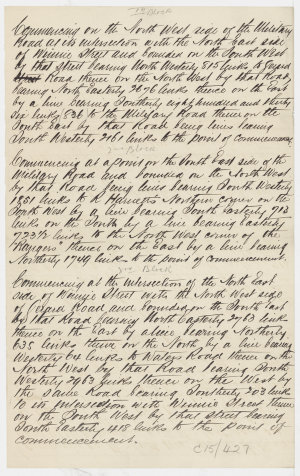 1st Block
Commencing on the North West side of the Military
Road at its intersection with the North East side
of Winnie Street and bounded on the South West
by that street bearing North Westerly 515 links to Gerard
Road thence on the North West by that Road,
bearing North Easterly 2076 links thence on the East
by a line bearing Southerly eight hundred and thirty
six links 836 to the Military Road thence on the
South East by that Road being lines bearing
South Westerly links to the point of commencement
2nd Block
Commencing at a point on the South East side of the
Military Road and bounded on the North West
by that Road being lines bearing South Westerly
1851 links to R Northern corner on the
South West by a line bearing South Easterly
links on the South by a line bearing Easterly
links to the North West corner of the
"Rangers" thence on the East by a line bearing
Northerly 1749 links to the point of commencement.
3rd Block
Commencing at the intersection of the North East
side of Winnie Street with the North West side
of Gerard Road and bounded on the South East
by that Road bearing North Easterly links
thence on the East by a line bearing Northerly
635 links thence on the North by a line bearing
Westerly 64 links to Water Road thence on the
North West by that Road bearing South
Westerly 2963 links thence on the West by
the same Road bearing Southerly 203 links
to its intersection with Winnie Street thence
on the South West by that street bearing
South Easterly 418 links to the point of
commencement.
C15/427